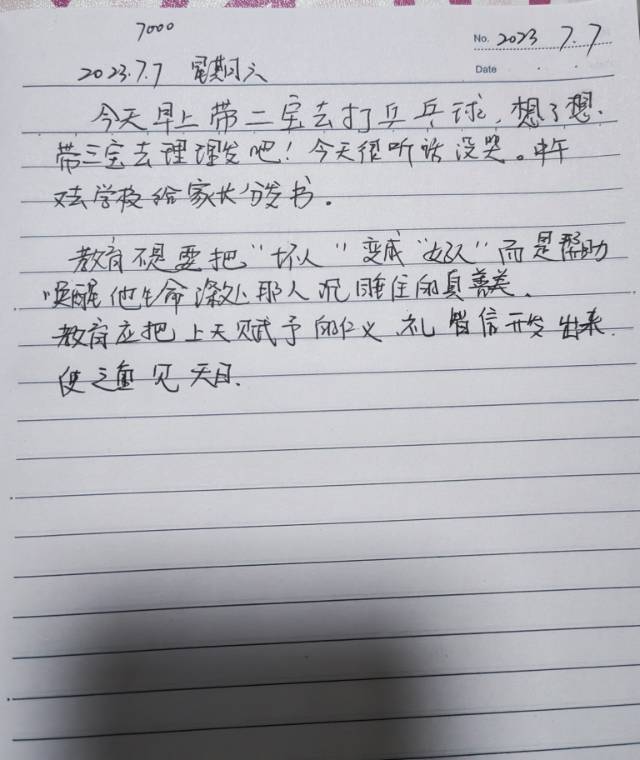 7000
No. 2023 7.7
2023.7.7 星期六
Date
今天早上带二宝去打乒乓球,想了想.
带三宝去理理发吧!今天很听话没哭。中午
去学校给家长分发书。
教育不是要把“坏人”变成“好人”而是帮助
唤醒他生命深处那人沉睡住的真善美.
教育应把上天赋予的仁义、礼智信开发出来.
使之重见天日.